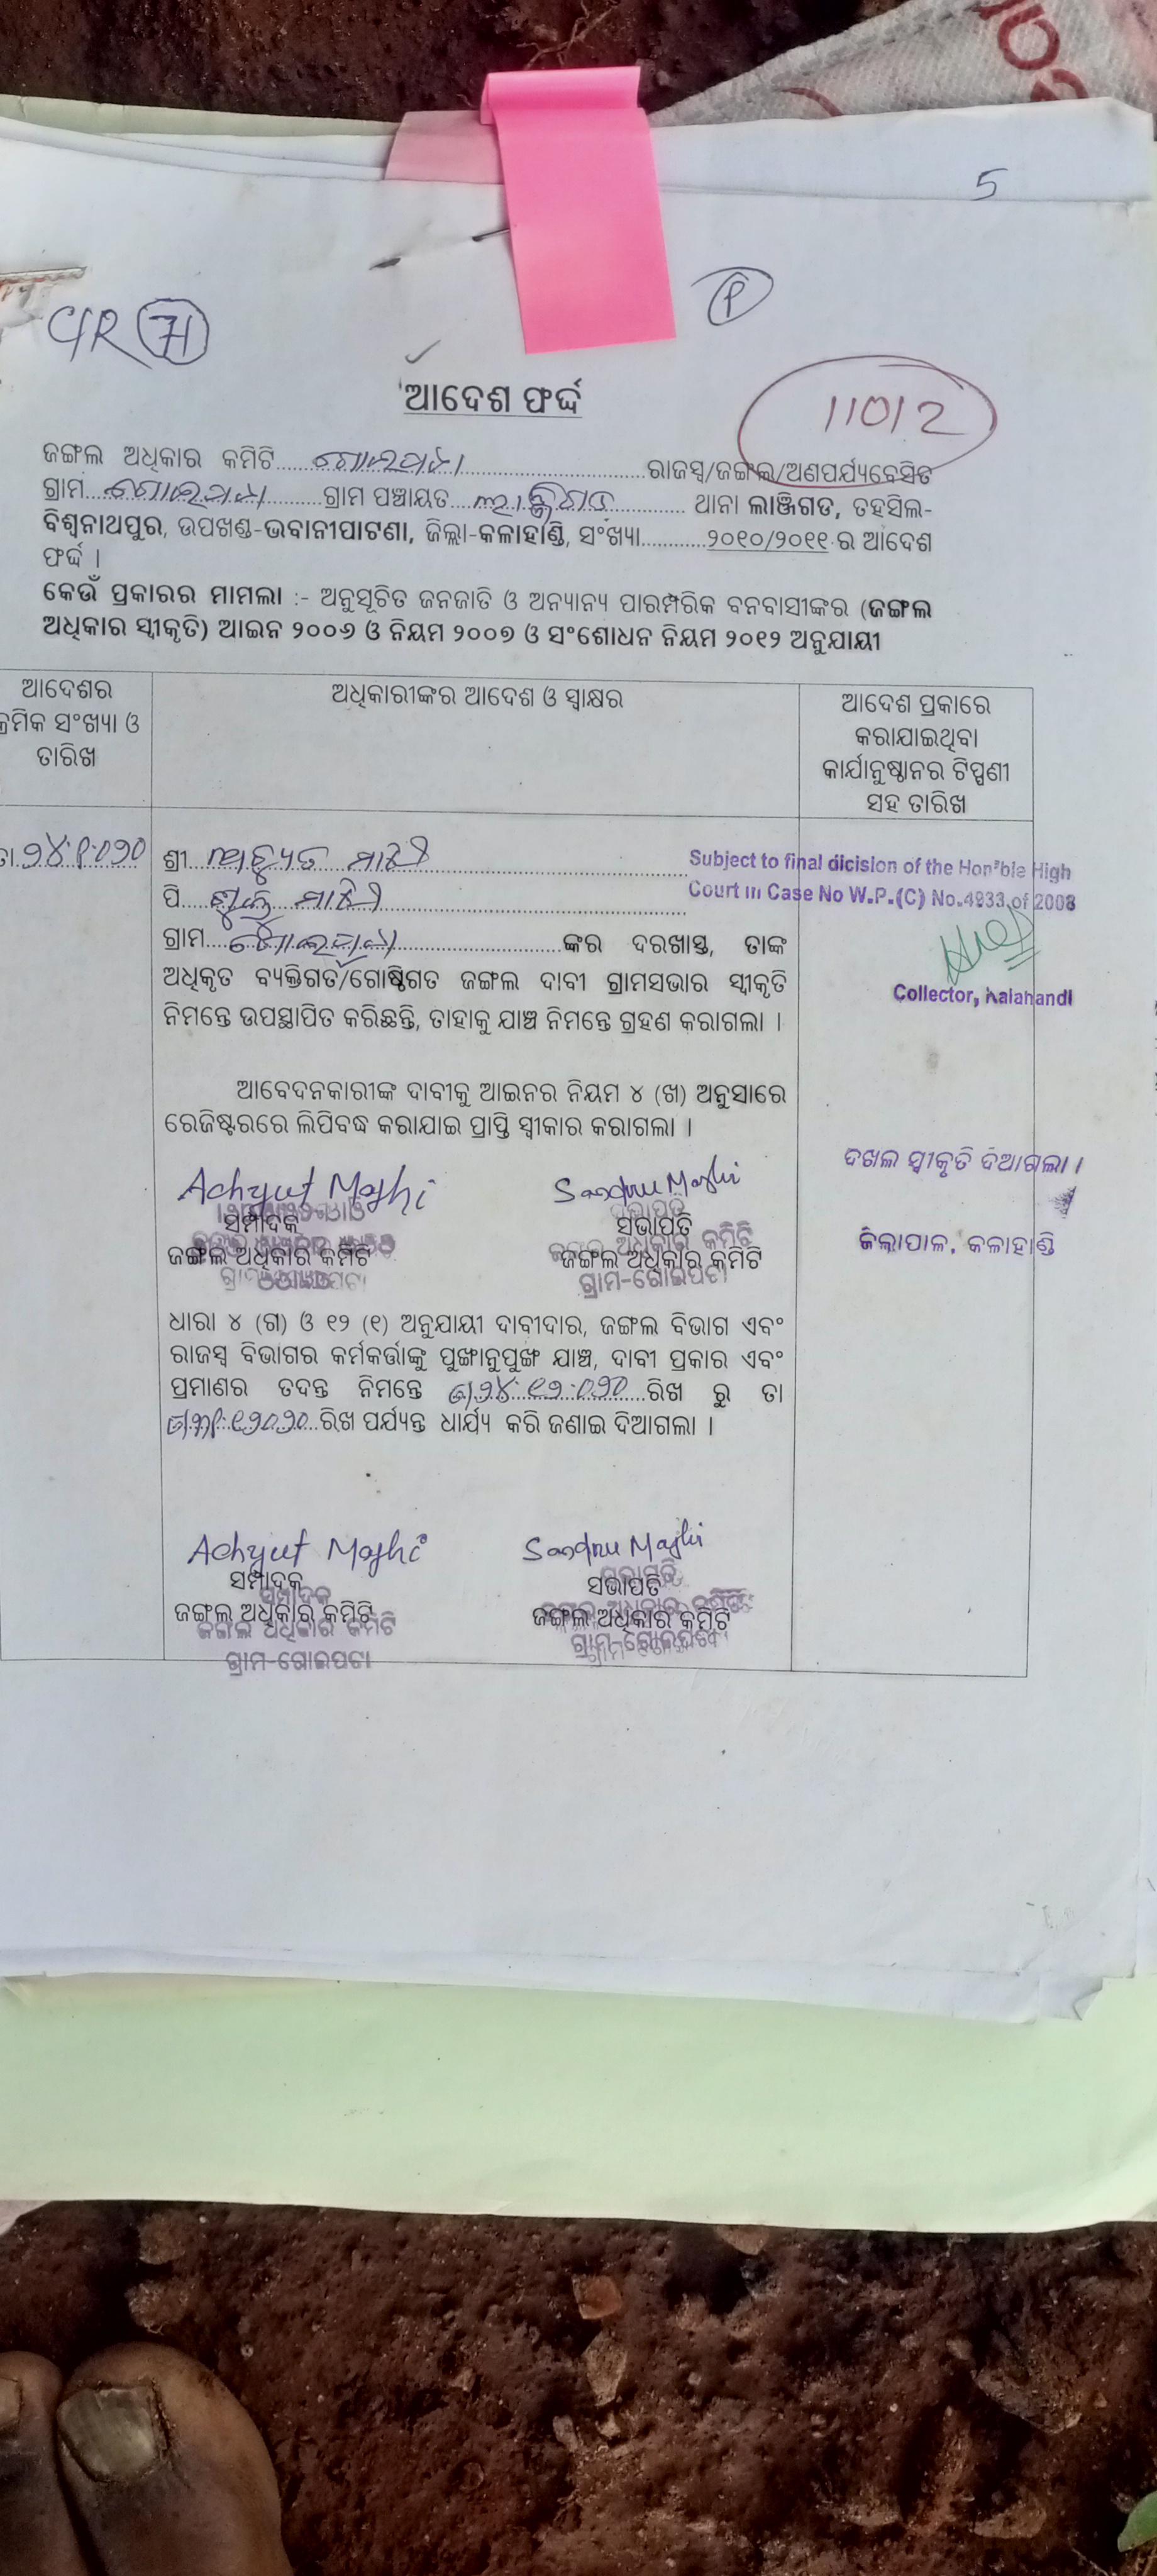 5
71
P
ଆଦେଶ ଫର୍ଦ୍ଦ
11012
ଜଙ୍ଗଲ ଅଧିକାର କମିଟି..........ରାଜସ୍ୱ/ଜଙ୍ଗଲ/ଅଣପର୍ଯ୍ୟବେସିତ
ଗ୍ରାମ..........ଗ୍ରାମ ପଞ୍ଚାୟତ.......... ଥାନା ଲାଞ୍ଜିଗଡ, ତହସିଲ-
ବିଶ୍ୱନାଥପୁର, ଉପଖଣ୍ଡ-ଭବାନୀପାଟଣା, ଜିଲ୍ଲା-କଳାହାଣ୍ଡି, ସଂଖ୍ୟା............୨୦୧୦/୨୦୧୧ ର ଆଦେଶ
ଫର୍ଦ୍ଦ ।
କେଉଁ ପ୍ରକାରର ମାମଲା :- ଅନୁସୂଚିତ ଜନଜାତି ଓ ଅନ୍ୟାନ୍ୟ ପାରମ୍ପରିକ ବନବାସୀଙ୍କର (ଜଙ୍ଗଲ
ଅଧିକାର ସ୍ୱୀକୃତି) ଆଇନ ୨୦୦୬ ଓ ନିୟମ ୨୦୦୭ ଓ ସଂଶୋଧନ ନିୟମ ୨୦୧୨ ଅନୁଯାୟୀ
ଆଦେଶର
କ୍ରମିକ ସଂଖ୍ୟା ଓ
ତାରିଖ
ଅଧିକାରୀଙ୍କର ଆଦେଶ ଓ ସ୍ୱାକ୍ଷର
ଆଦେଶ ପ୍ରକାରେ
କରାଯାଇଥିବା
କାର୍ଯାନୁଷ୍ଠାନର ଟିପ୍ପଣୀ
ସହ ତାରିଖ
ଶ୍ରୀ ଅଚ୍ୟୁତ ମାଝୀ
ପି.......... ମାଝୀ
ଗ୍ରାମ..........ଙ୍କର ଦରଖାସ୍ତ, ତାଙ୍କ
ଅଧିକୃତ ବ୍ୟକ୍ତିଗତ/ଗୋଷ୍ଠିଗତ ଜଙ୍ଗଲ ଦାବୀ ଗ୍ରାମସଭାର ସ୍ୱୀକୃତି
ନିମନ୍ତେ ଉପସ୍ଥାପିତ କରିଛନ୍ତି, ତାହାକୁ ଯାଞ୍ଚ ନିମନ୍ତେ ଗ୍ରହଣ କରାଗଲା ।
ଆବେଦନକାରୀଙ୍କ ଦାବୀକୁ ଆଇନର ନିୟମ ୪ (ଖ) ଅନୁସାରେ
ରେଜିଷ୍ଟରରେ ଲିପିବଦ୍ଧ କରାଯାଇ ପ୍ରାପ୍ତି ସ୍ୱୀକାର କରାଗଲା ।
Achyut Majhi
ସମ୍ପାଦକ
ଜଙ୍ଗଲ ଅଧିକାର କମିଟି
Majhi
ସଭାପତି
ଜଙ୍ଗଲ ଅଧିକାର କମିଟି
ଗ୍ରାମ-ଗୋଇପଟା
ଧାରା ୪ (ଗ) ଓ ୧୨ (୧) ଅନୁଯାୟୀ ଦାବୀଦାର, ଜଙ୍ଗଲ ବିଭାଗ ଏବଂ
ରାଜସ୍ୱ ବିଭାଗର କର୍ମକର୍ତ୍ତାଙ୍କୁ ପୁଙ୍ଖାନୁପୁଙ୍ଖ ଯାଞ୍ଚ, ଦାବୀ ପ୍ରକାର ଏବଂ
ପ୍ରମାଣର ତଦନ୍ତ ନିମନ୍ତେ..........ରିଖ ରୁ ତା
..........ରିଖ ପର୍ଯ୍ୟନ୍ତ ଧାର୍ଯ୍ୟ କରି ଜଣାଇ ଦିଆଗଲା ।
Achyut Majhi
ସମ୍ପାଦକ
ଜଙ୍ଗଲ ଅଧିକାର କମିଟି
ଜଙ୍ଗଲ ଅଧିକାର କମିଟି
ଗ୍ରାମ-ଗୋଇପଟା
Majhi
ସଭାପତି
ଜଙ୍ଗଲ ଅଧିକାର କମିଟି
Subject to final dicision of the Hon'ble High
Court in Case No W.P.(C) No.4933 of 2008
Collector, Kalahandi
ଦଖଲ ସ୍ୱୀକୃତି ଦିଆଗଲା ।
ଜିଲ୍ଲାପାଳ, କଳାହାଣ୍ଡି